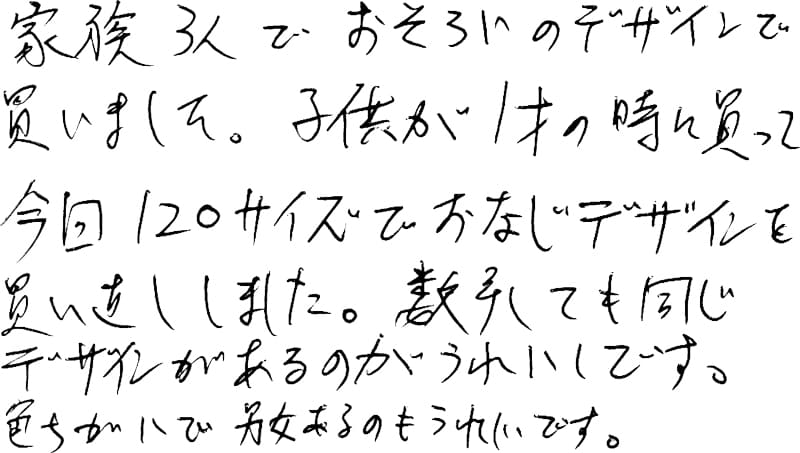 家族3人でおそろいのデザインで
買いました。子供が1才の時に買って
今回120サイズでおなじデザインを
買い直ししました。数年しても同じ
デザインがあるのがうれしいです。
色ちがいで男女あるのもうれしいです。